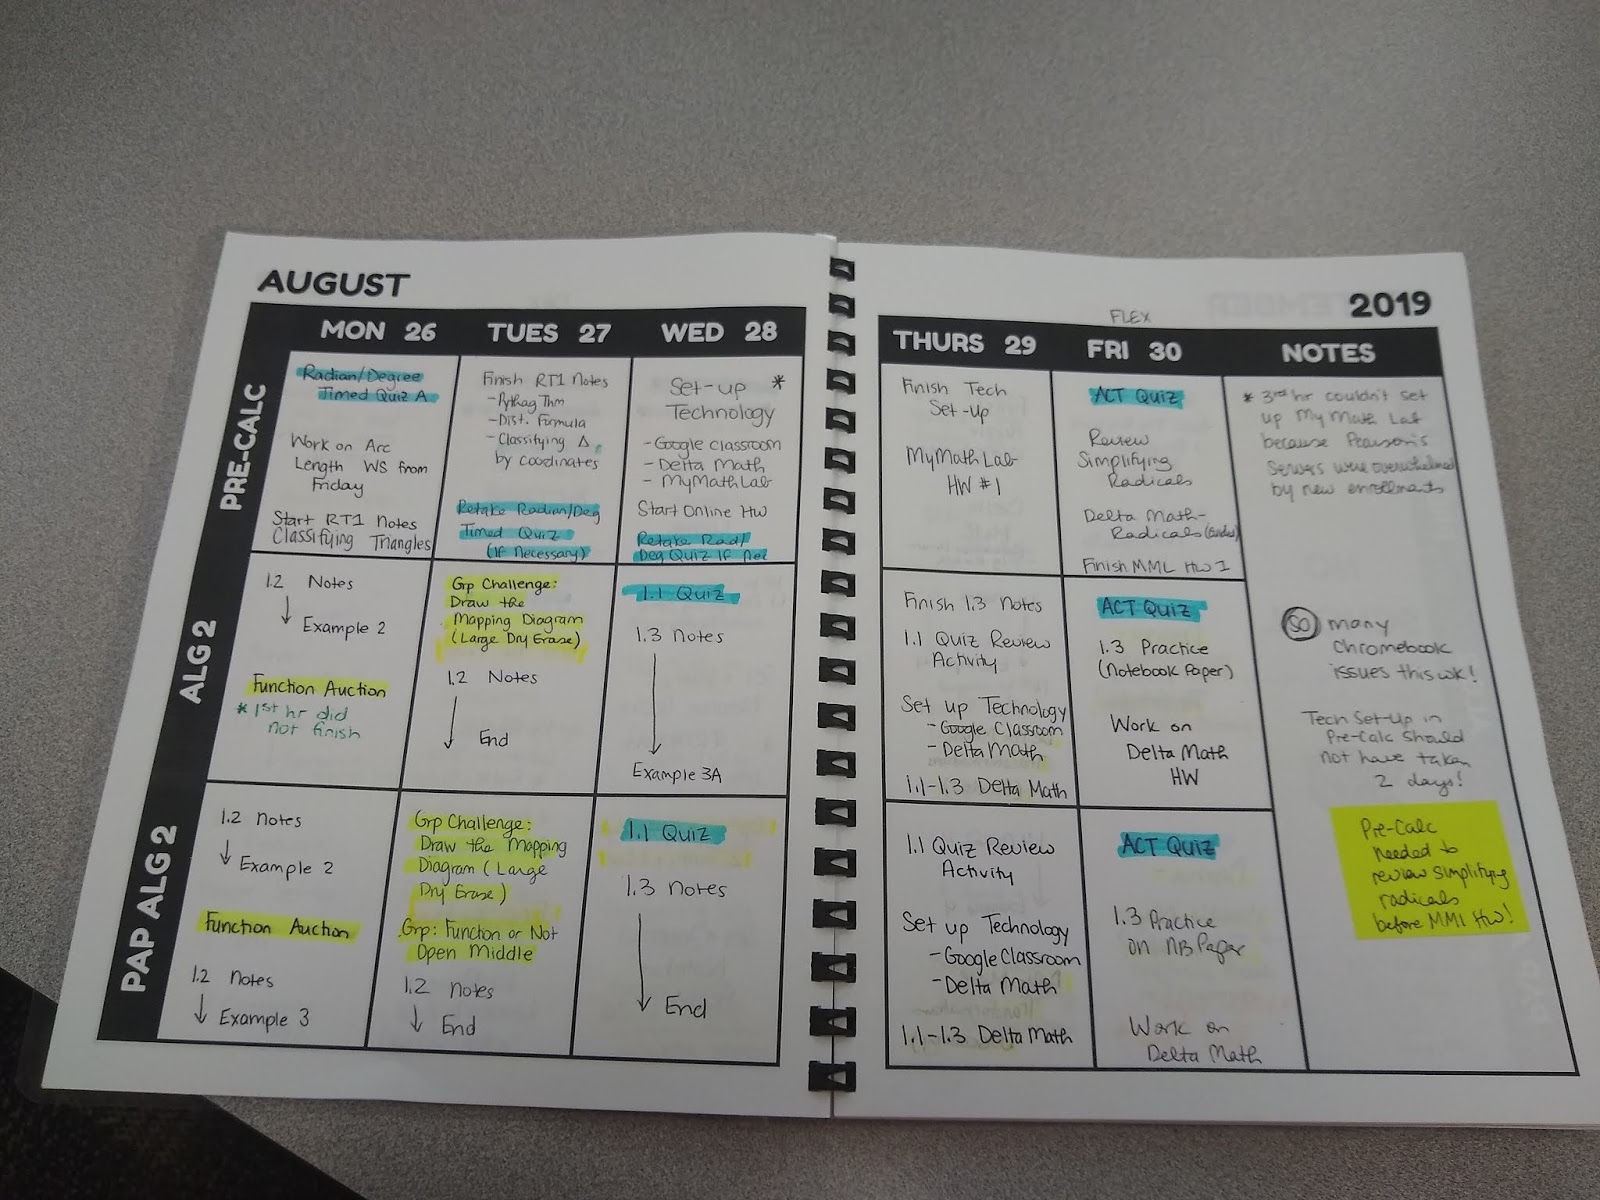 AUGUST
MON 26
TUES 27
WED 28
PRE-CALC
Radian/Degree
Timed Quiz A
Work on Arc
Length WS from
Friday
Start RT1 Notes
Classifying Triangles
Finish RT1 Notes
- Pythag Thm
- Dist. Formula
- Classifying Δ
by coordinates
Retake Radian/Deg
Timed Quiz
(If necessary)
Set-up *
Technology
- Google Classroom
- Delta Math
- MyMathLab
Start Online HW
Retake Rad/
Deg Quiz If nec
ALG 2
1.2 Notes
↓ Example 2
Function Auction
* 1st hr did
not finish
Grp Challenge:
Draw the
Mapping Diagram
(Large Dry Erase)
1.2 Notes
↓ End
1.1 Quiz
1.3 Notes
↓
Example 3A
PAP ALG 2
1.2 Notes
↓ Example 2
Function Auction
1.2 Notes
↓ Example 3
Grp Challenge:
Draw the Mapping
Diagram (Large
Dry Erase)
Grp: Function or Not
Open Middle
1.2 Notes
↓ End
1.1 Quiz
1.3 Notes
↓ End
2019
FLEX
THURS 29
FRI 30
NOTES
Finish Tech
Set-Up
MyMathLab
HW #1
ACT Quiz
Review
Simplifying
Radicals
Delta Math-
Radicals
Finish MML HW 1
* 3rd hr couldn't set
up My Math Lab
because Pearson's
Servers were overwhelmed
by new enrollments
Finish 1.3 Notes
1.1 Quiz Review
Activity
Set up Technology
- Google Classroom
- Delta Math
1.1-1.3 Delta Math
ACT Quiz
1.3 Practice
(Notebook Paper)
Work on
Delta Math
HW
SO many
Chromebook
issues this wk!
Tech Set-Up in
Pre-Calc should
not have taken
2 days!
1.1 Quiz Review
Activity
Set up Technology
- Google Classroom
- Delta Math
1.1-1.3 Delta Math
ACT Quiz
1.3 Practice
on NB Paper
Work on
Delta Math
Pre-Calc
needed to
review simplifying
radicals
before MML HW!